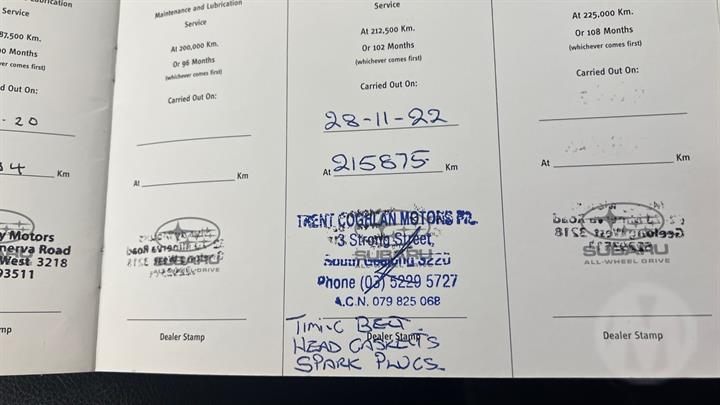 Service
87,500 Km.
0 Months
ver comes first)
d Out On:
- 20
34 Km
y Motors
nerva Road
West 3218
93511
mp
Maintenance and Lubrication
Service
At 200,000 Km.
Or 96 Months
(whichever comes first)
Carried Out On:
At Km
Dealer Stamp
Service
At 212,500 Km.
Or 102 Months
(whichever comes first)
Carried Out On:
28-11-22
At 215875 Km
TRENT COGHLAN MOTORS P/L
3 Strong Street,
South Geelong 3220
Phone (03) 5229 5727
A.C.N. 079 825 068
TIMING BELT.
HEAD GASKETS
Dealer Stamp
SPARK PLUGS.
At 225,000 Km.
Or 108 Months
(whichever comes first)
Carried Out On:
At Km
SUBARU
ALL-WHEEL DRIVE
Dealer Stamp